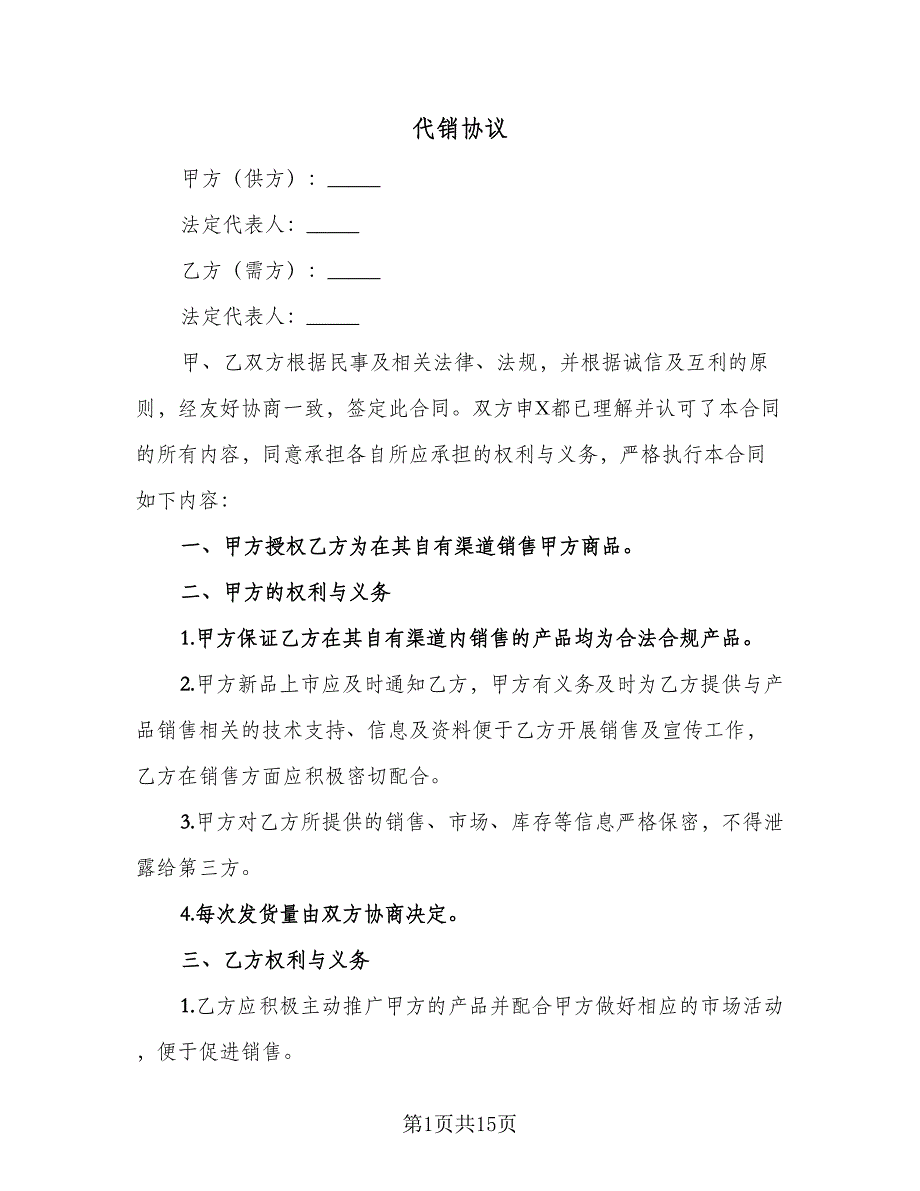 代销协议
甲方（供方）：_____
法定代表人：_____
乙方（需方）：_____
法定代表人：_____
甲、乙双方根据民事及相关法律、法规，并根据诚信及互利的原
则，经友好协商一致，签定此合同。双方申X都已理解并认可了本合同
的所有内容，同意承担各自所应承担的权利与义务，严格执行本合同
如下内容：
一、甲方授权乙方为在其自有渠道销售甲方商品。
二、甲方的权利与义务
1.甲方保证乙方在其自有渠道内销售的产品均为合法合规产品。
2.甲方新品上市应及时通知乙方，甲方有义务及时为乙方提供与产
品销售相关的技术支持、信息及资料便于乙方开展销售及宣传工作，
乙方在销售方面应积极密切配合。
3.甲方对乙方所提供的销售、市场、库存等信息严格保密，不得泄
露给第三方。
4.每次发货量由双方协商决定。
三、乙方权利与义务
1.乙方应积极主动推广甲方的产品并配合甲方做好相应的市场活动
，便于促进销售。
第1页共15页